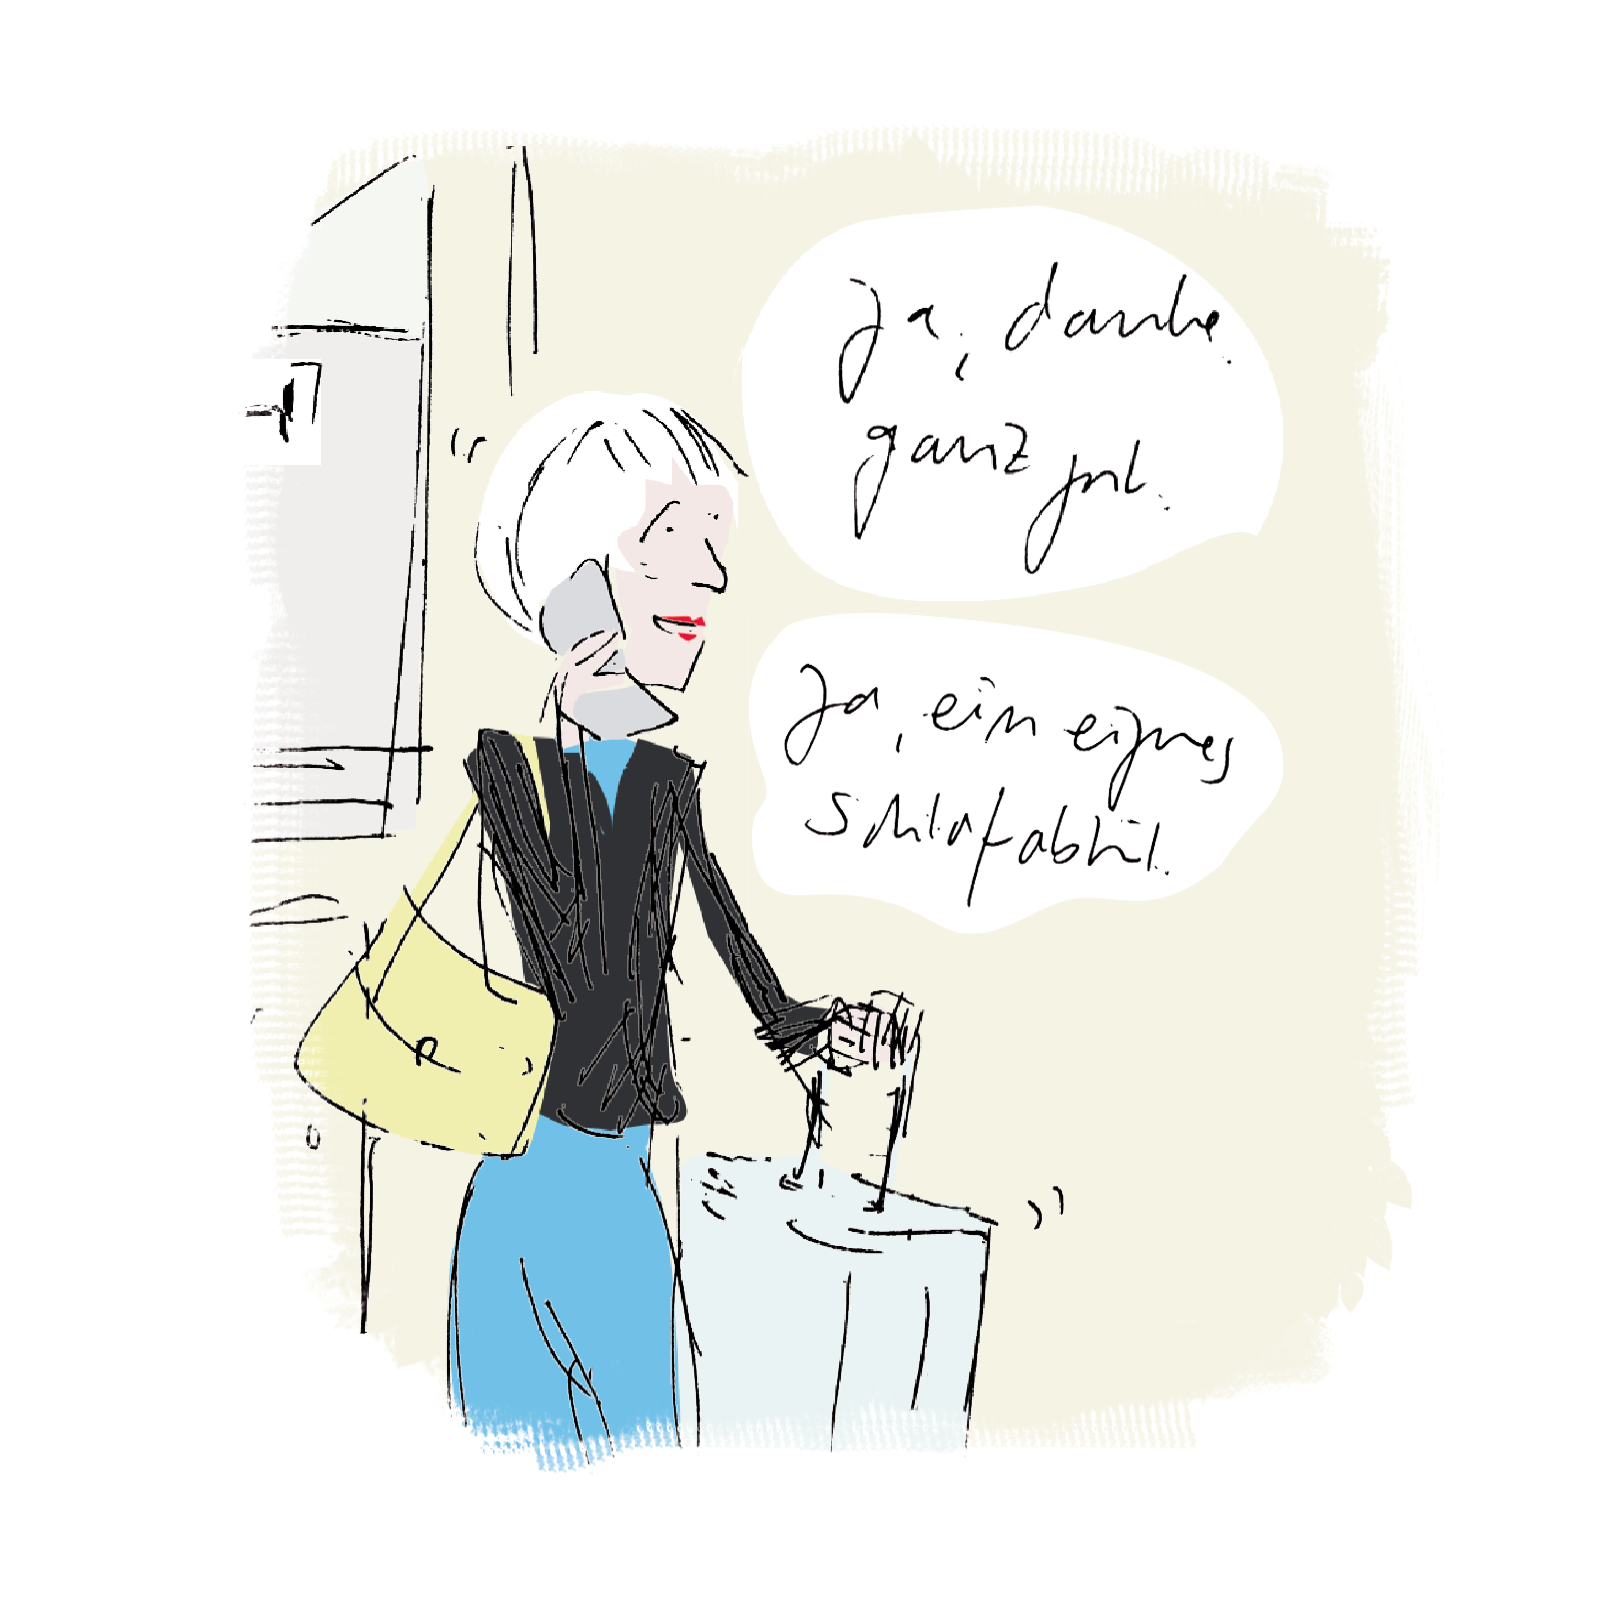 Ja, danke.
ganz gut.
Ja, ein eignes
Schlafabteil.